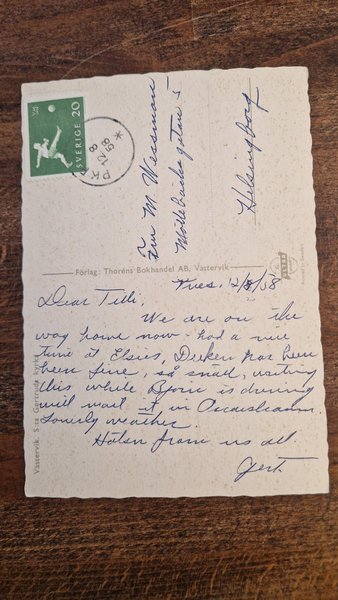 SVERIGE 20
PKP
12 8
58
Fru M. Wiseman
Möllebacksgatan 5
Helsingborg
Förlag: Thoréns Bokhandel AB, Västervik
Västervik. S:ta Gertruds kyrka
Tues. 12/8/58
Dear Titti,
We are on the
way home now - had a nice
time at Elsies,
been fine, så snäll, writing
this while Björn is driving
will mail it in Oscarshamn.
Lovely weather.
Hälsn from us all.
Gert